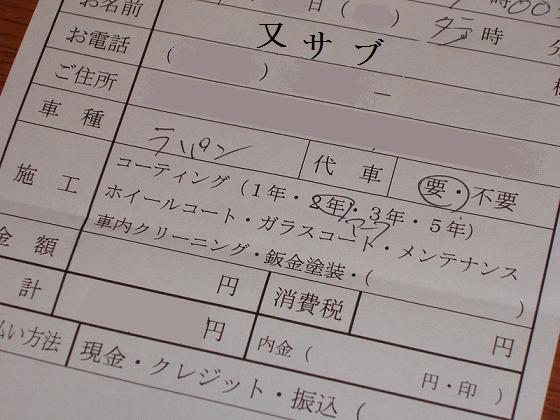 お名前 日( ) 時00
又サブ 夕方 時 分
お電話 ( ) －
ご住所
車種 ラパン 代車 要・不要
施工 コーティング(1年・2年・3年・5年)
ホイールコート・ガラスコート・メンテナンス
車内クリーニング・鈑金塗装・( )
金額 円 消費税 円
計 円 内金( 円・印)
払い方法 現金・クレジット・振込(